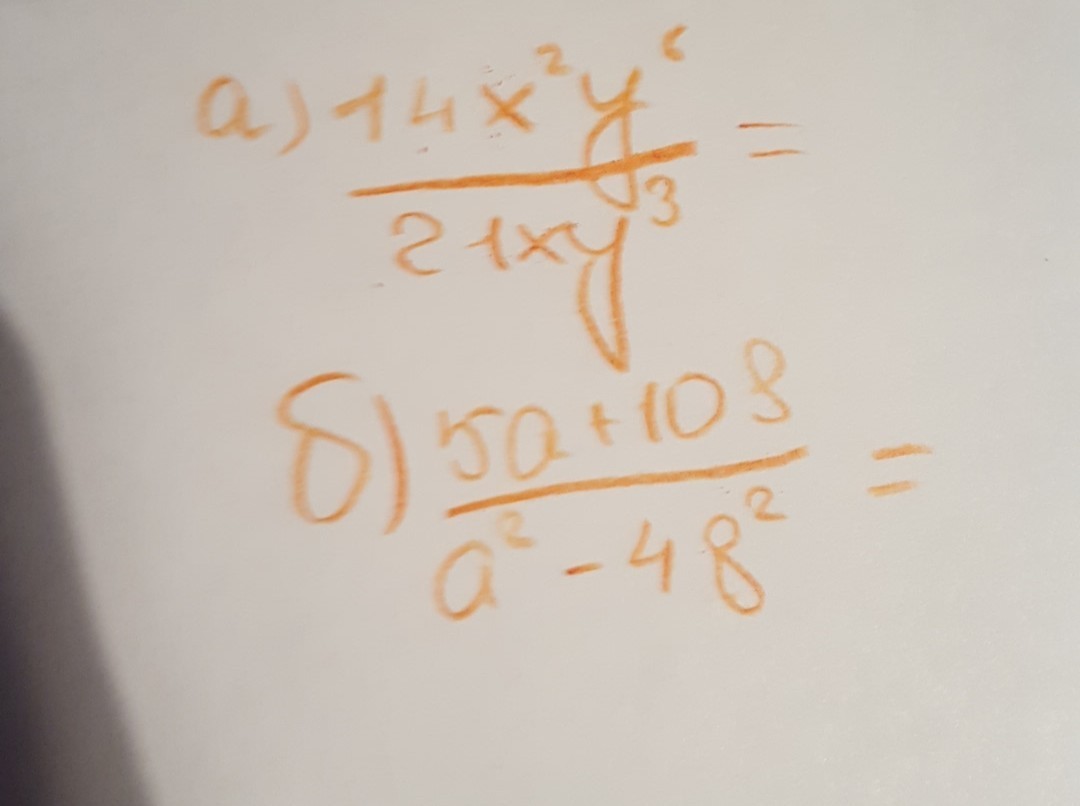 а) 14x²y⁶ =
21xy³
б) 5a+10в =
a² - 4в²